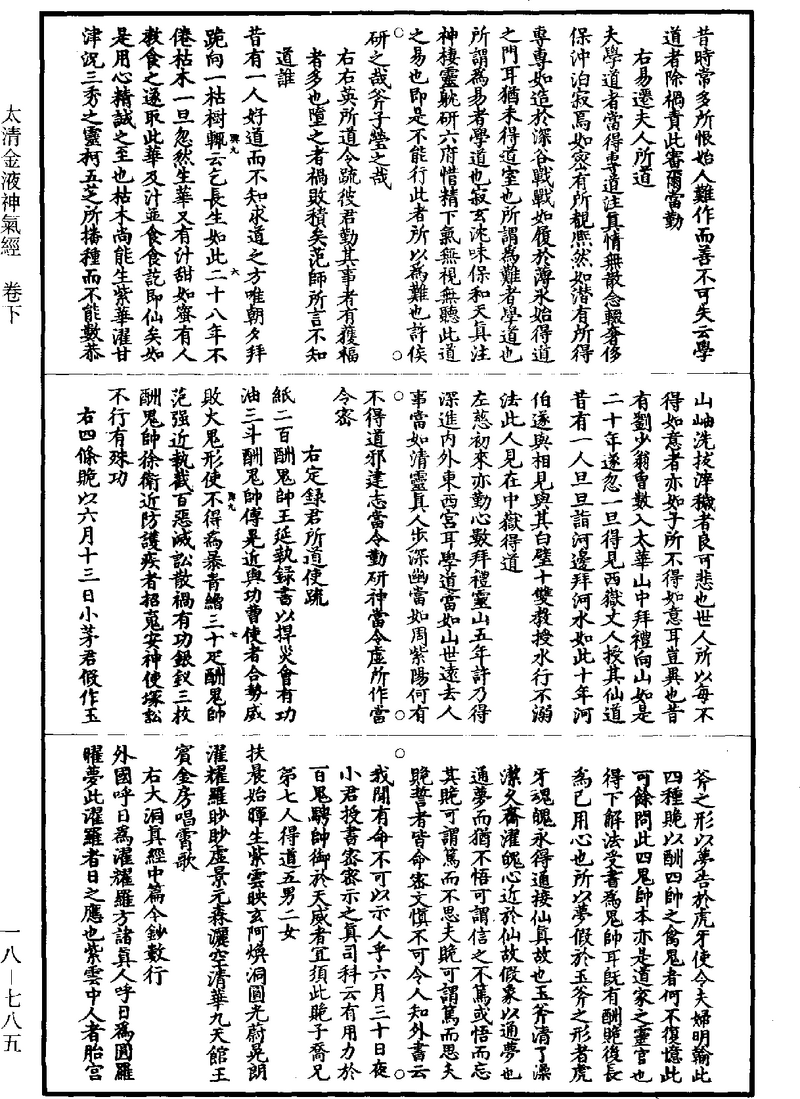 昔時常多所恨始人難作而善不可失云學
道者除禍責此審爾當勤
右易遷夫人所道
夫學道者當得專道注真情無散念輟奢侈
保沖泊寂焉如密有所覩熙然如潛有所得
專專如造於深谷戰戰如履於薄氷始得道
之門耳猶未得道室也所謂為難者學道也
所謂為易者學道也寂玄沈味保和天真注
神棲靈躭研六府惜精下氣無視無聽此道
之易也即是不能行此者所以為難也許侯
研之哉斧子瑩之哉
右右英所道令疏彼君勤其事者有獲福
者多也墮之者禍敗積矣范師所言不知
道誰
昔有一人好道而不知求道之方唯朝夕拜
跪向一枯樹輒云乞長生如此二十八年不
倦枯木一旦忽然生華又有汁甜如蜜有人
教食之遂取此華及汁並食食訖即仙矣如
是用心精誠之至也枯木尚能生紫華濯甘
津況三秀之靈柯五芝所播種而不能數恭
山岫洗拔滓穢者良可悲也世人所以每不
得如意者亦如子所不得如意耳豈異也昔
有劉少翁曾數入太華山中拜禮向山如是
二十年遂忽一旦得見西嶽丈人授其仙道
昔有一人旦旦詣河邊拜河水如此十年河
伯遂與相見與其白璧十雙教授水行不溺
法此人見在中嶽得道
左慈初來亦勤心數拜禮靈山五年許乃得
深進內外東西宮耳學道當如山世遠去人
事當如清靈真人步深幽當如周紫陽何有
不得道邪建志當令勤研神當令虛所作當
令密
右定錄君所道使疏
紙二百酬鬼帥王延執錄書以捍災會有功
油三斗酬鬼帥傅晃近與功曹使者合勢威
敗火鬼形使不得為暴青繒三十疋酬鬼帥
范强近執截百惡滅訟散禍有功銀釵三枚
酬鬼帥徐衛近防護疾者招䰟安神使塚訟
不行有殊功
右四條䝺以六月十三日小茅君假作玉
斧之形以夢告於虎牙使令夫婦明輸此
四種䝺以酬四帥之禽鬼者何不復憶此
可餘問此四鬼帥本亦是道家之靈官也
得下解法受書為鬼帥耳旣有酬䝺復長
為已用心也所以夢假於玉斧之形者虎
牙魂魄永得通接仙真故也玉斧清了澡
潔久齋濯魄心近於仙故假象以通夢也
通夢而猶不悟可謂信之不篤或悟而忘
其䝺可謂篤而不思夫䝺可謂篤而思夫
䝺誓者皆命審文慎不可令人知外書云
我聞有命不可以示人乎六月三十日夜
小君授書密密示之真司科云有用力於
百鬼騁帥御於天威者宜須此䝺子喬兄
弟七人得道五男二女
扶晨始暉生紫雲映玄阿煥洞圓光蔚晃朗
濯耀羅眇眇虛景元森灑空清華九天館王
賓金房唱霄歌
右大洞真經中篇令鈔數行
外國呼日為濯耀羅方諸真人呼日為圓羅
曜夢此濯羅者日之應也紫雲中人者胎宮
太清金液神氣經　卷下
一八—七八五